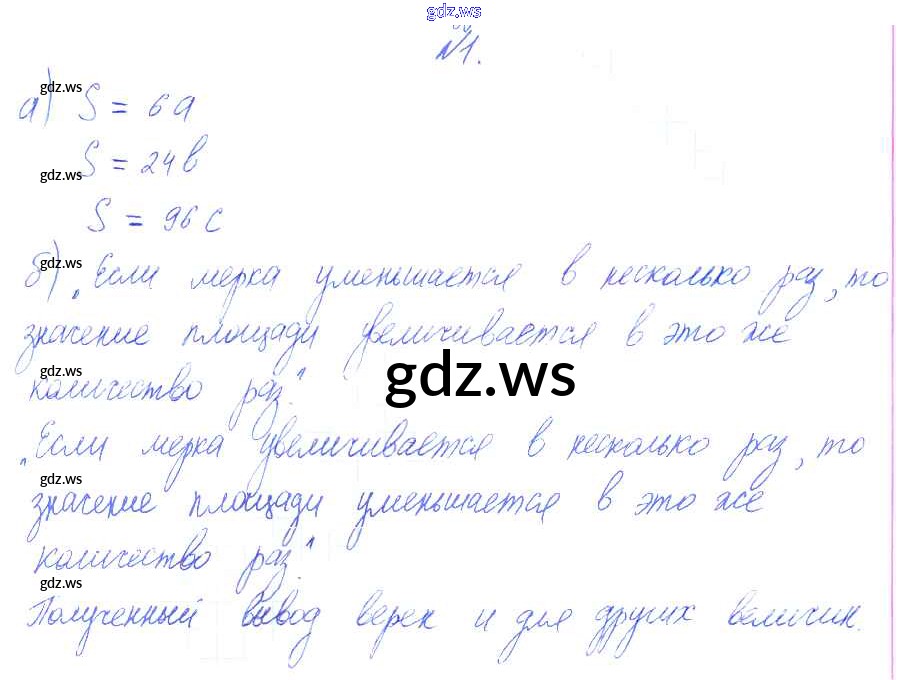 gdz.ws
№1.
gdz.ws
а) S = 6a
S = 24b
gdz.ws
S = 96c
gdz.ws
б) „Если мерка уменьшается в несколько раз, то
значение площади увеличивается в это же
gdz.ws
gdz.ws
количество раз."
„Если мерка увеличивается в несколько раз, то
gdz.ws
значение площади уменьшается в это же
количество раз."
gdz.ws
Полученный вывод верен и для других величин.